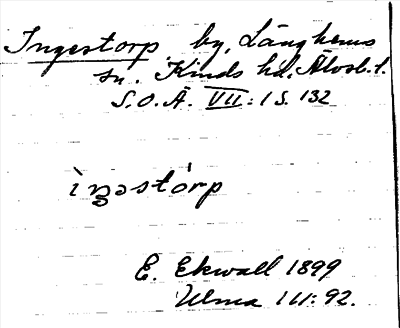 Ingestorp by, Länghems
sn. Kinds hd. Älvsb. l.
S.O.Ä. VII:1 S. 132
ìŋəstórp
E. Ekwall 1899
Ulma 111:92.